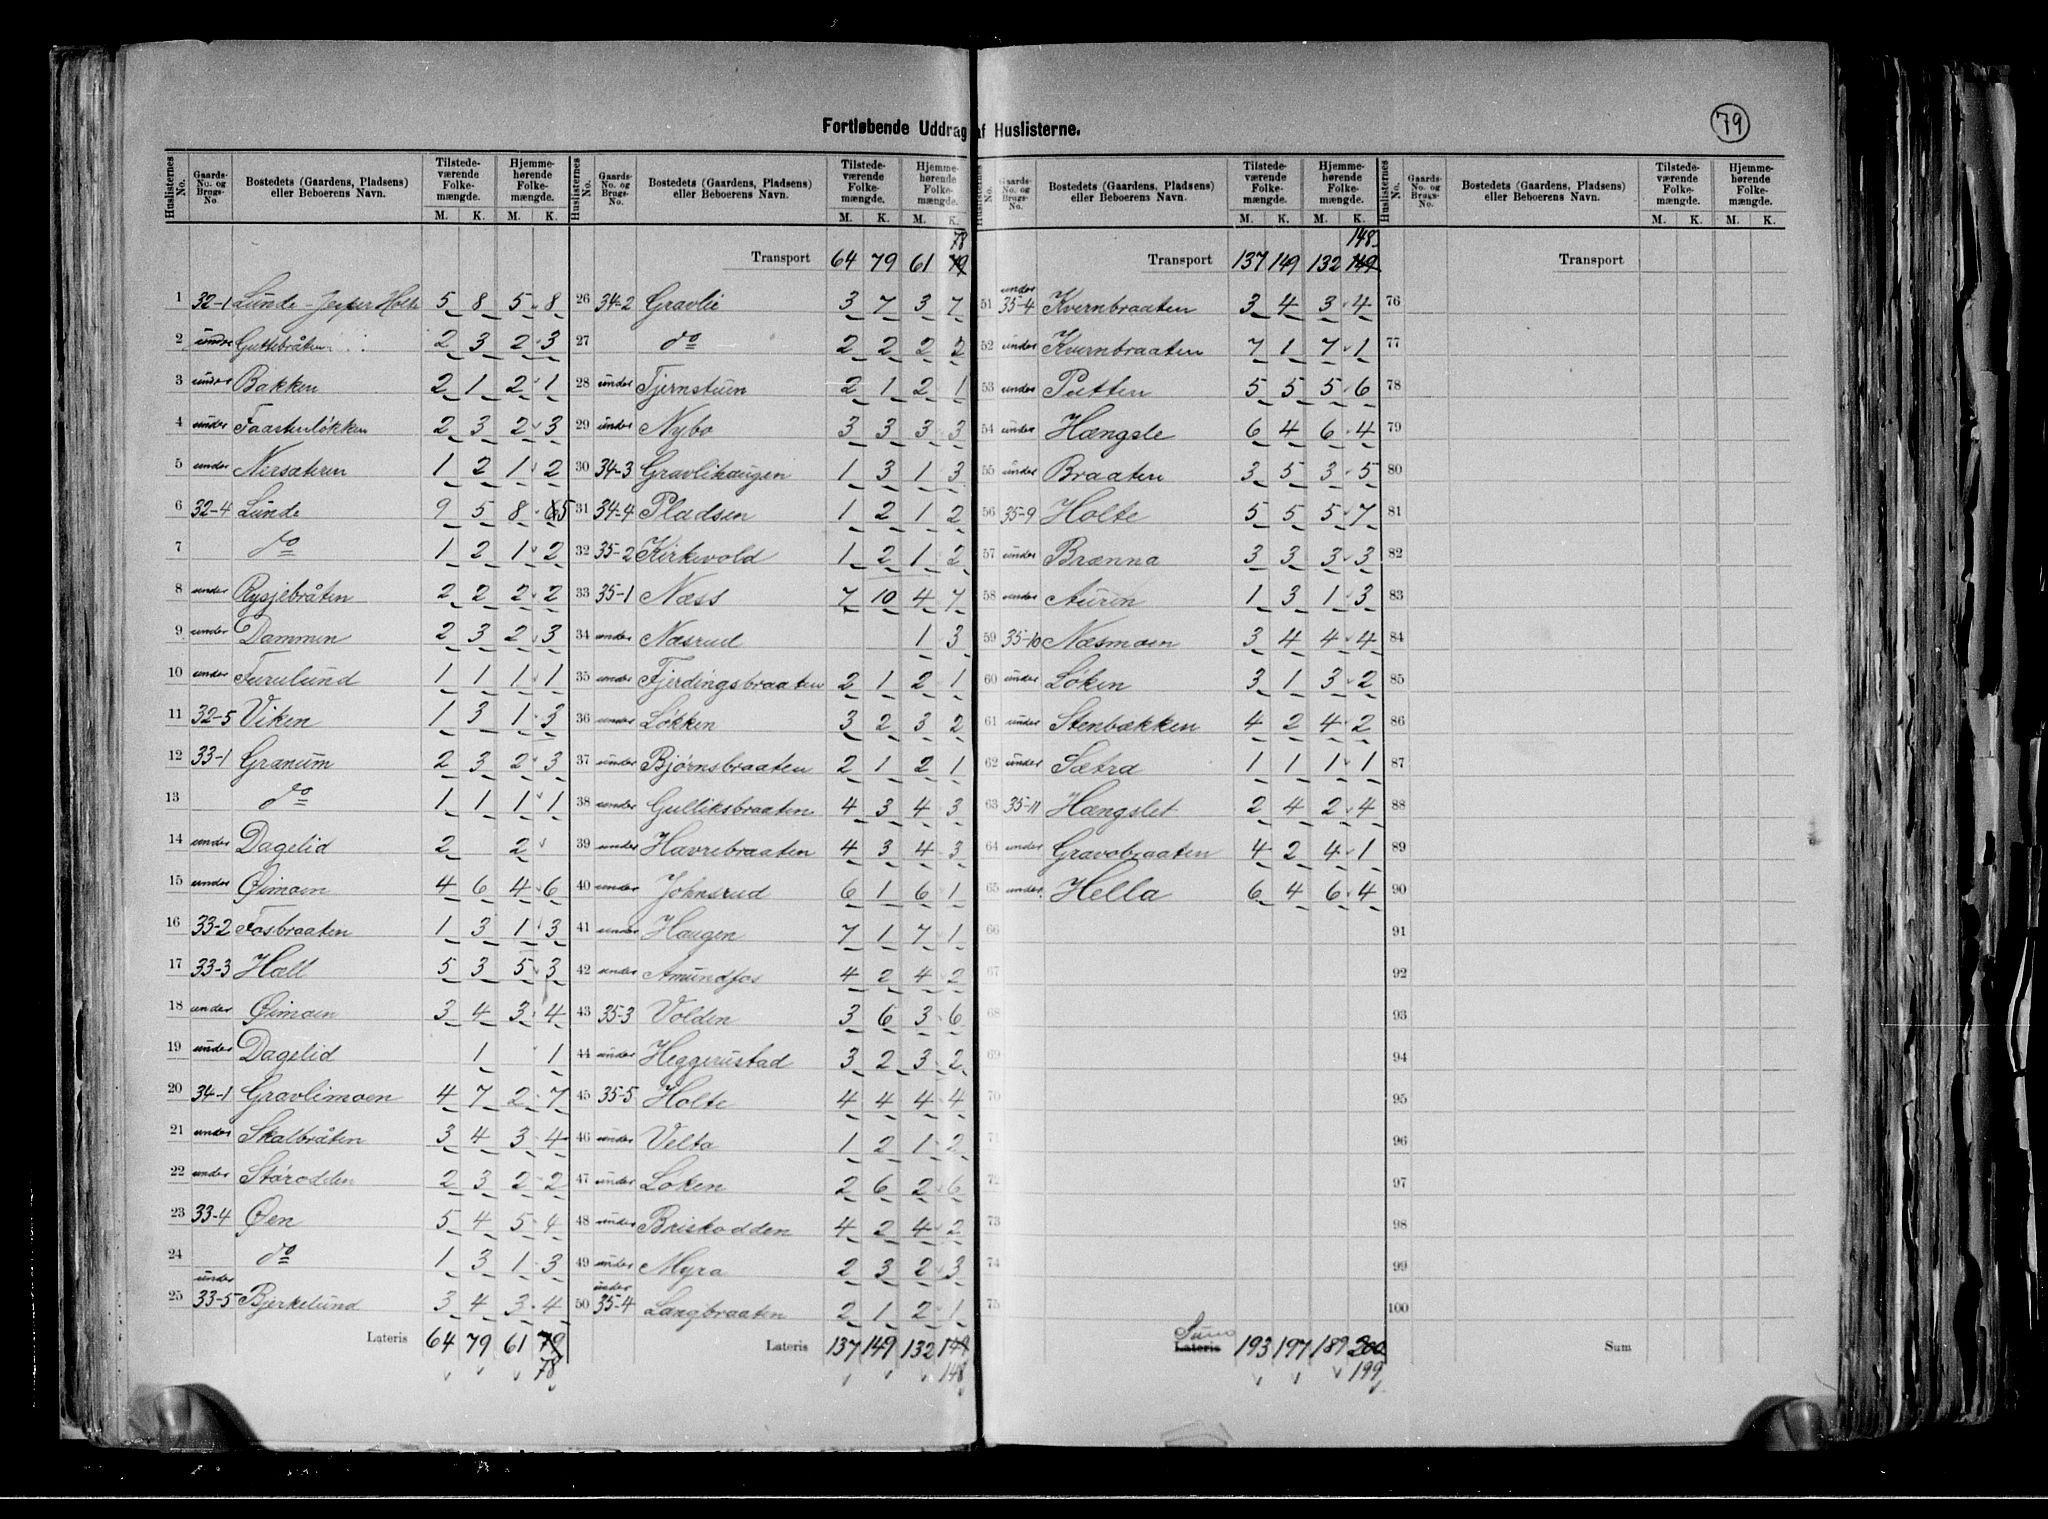 79
Fortløbende Uddrag af Huslisterne.
Huslisternes No. | Gaards-No. og Brugs-No. | Bostedets (Gaardens, Pladsens) eller Beboerens Navn. | Tilstedeværende Folkemængde. M. K. | Hjemmehørende Folkemængde. M. K.
1 32-1 Lunde - Jesper Holte 5 8 5 8
2 under Guttebråten 2 3 2 3
3 under Bakken 2 1 2 1
4 under Faastenløkken 2 3 2 3
5 under Nersæteren 1 2 1 2
6 32-4 Lunde 9 5 8 5
7 do 1 2 1 2
8 under Rysjebråten 2 2 2 2
9 under Dammen 2 3 2 3
10 under Furulund 1 1 1 1
11 32-5 Viken 1 3 1 3
12 33-1 Granum 2 3 2 3
13 do 1 1 1 1
14 under Dagelid 2 2
15 under Øimoen 4 6 4 6
16 33-2 Fosbraaten 1 3 1 3
17 33-3 Hæll 5 3 5 3
18 under Øimoen 3 4 3 4
19 under Dagelid 1 1
20 34-1 Gravlimoen 4 7 2 7
21 under Skalbråten 3 4 3 4
22 under Störodden 2 3 2 2
23 33-4 Øen 5 4 5 4
24 do 1 3 1 3
25 under 33-5 Bjerkelund 3 4 3 4
Lateris 64 79 61 79
78
Huslisternes No. | Gaards-No. og Brugs-No. | Bostedets (Gaardens, Pladsens) eller Beboerens Navn. | Tilstedeværende Folkemængde. M. K. | Hjemmehørende Folkemængde. M. K.
78
Transport 64 79 61 79
26 34-2 Gravlie 3 7 3 7
27 do 2 2 2 2
28 under Tjernstuen 2 1 2 1
29 under Nybo 3 3 3 3
30 34-3 Gravlihaugen 1 3 1 3
31 34-4 Pladsen 1 2 1 2
32 35-2 Kirkevold 1 2 1 2
33 35-1 Næss 7 10 4 7
34 under Næsrud 1 3
35 under Fjerdingsbraaten 2 1 2 1
36 under Løkken 3 2 3 2
37 under Bjørnsbraaten 2 1 2 1
38 under Gulliksbraaten 4 3 4 3
39 under Havrebraaten 4 3 4 3
40 under Johnsrud 6 1 6 1
41 under Haugen 7 1 7 1
42 under Amundfos 4 2 4 2
43 35-3 Volden 3 6 3 6
44 under Heggerustad 3 2 3 2
45 35-5 Holte 4 4 4 4
46 under Velta 1 2 1 2
47 under Løken 2 6 2 6
48 under Briskodden 4 2 4 2
49 under Myra 2 3 2 3
50 under 35-4 Langbraaten 2 1 2 1
Lateris 137 149 132 149
148
Huslisternes No. | Gaards-No. og Brugs-No. | Bostedets (Gaardens, Pladsens) eller Beboerens Navn. | Tilstedeværende Folkemængde. M. K. | Hjemmehørende Folkemængde. M. K.
148
Transport 137 149 132 149
51 under 35-4 Kvernbraaten 3 4 3 4
52 under Kvernbraaten 7 1 7 1
53 under Putten 5 5 5 6
54 under Hængsle 6 4 6 4
55 under Braaten 3 5 3 5
56 35-9 Holte 5 5 5 7
57 under Brænna 3 3 3 3
58 under Auren 1 3 1 3
59 35-10 Næsmoen 3 4 4 4
60 under Løken 3 1 3 2
61 under Stenbækken 4 2 4 2
62 under Sætra 1 1 1 1
63 35-11 Hængslet 2 4 2 4
64 under Gravobraaten 4 2 4 1
65 under Hella 6 4 6 4
66
67
68
69
70
71
72
73
74
75
Sum
Lateris 193 197 189 200
199
Huslisternes No. | Gaards-No. og Brugs-No. | Bostedets (Gaardens, Pladsens) eller Beboerens Navn. | Tilstedeværende Folkemængde. M. K. | Hjemmehørende Folkemængde. M. K.
Transport
76
77
78
79
80
81
82
83
84
85
86
87
88
89
90
91
92
93
94
95
96
97
98
99
100
Sum